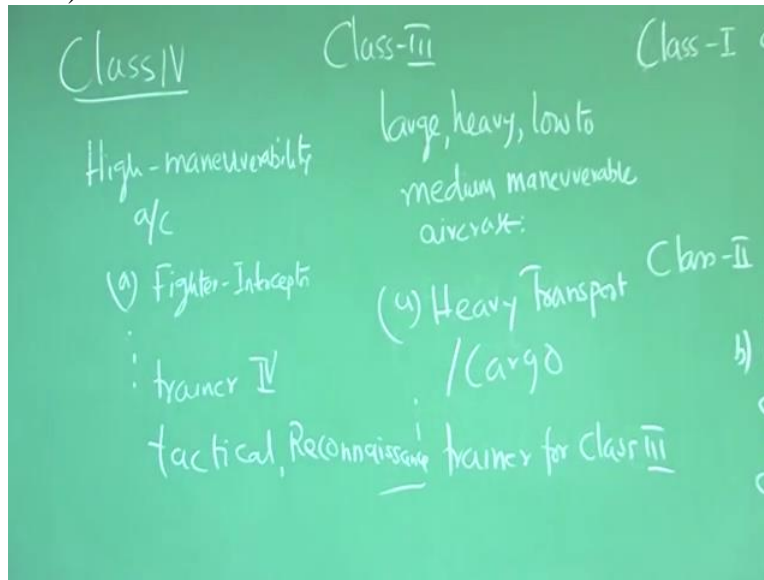 Class IV
High-maneuverability
a/c
(a) Fighter-Intercept
trainer IV
tactical, Reconnaissance
Class-III
large, heavy, low to
medium maneuverable
aircraft:
(a) Heavy Transport
/Cargo
trainer for Class III
Class-I
Class-II
b)